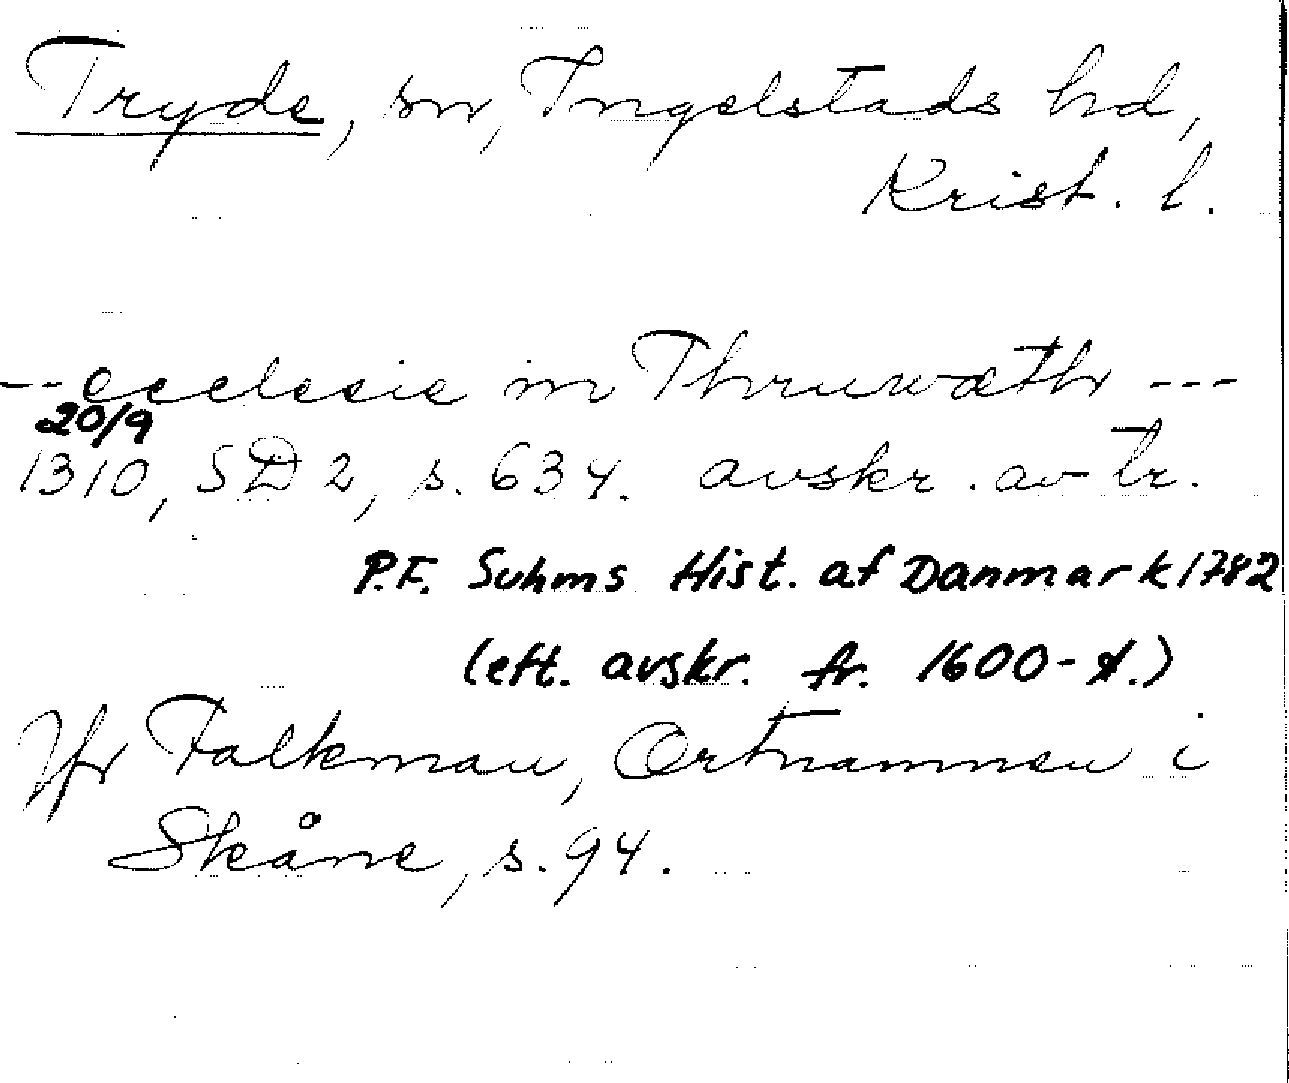 Tryde, sn, Ingelstads hd,
Krist. l.
--- ecclesie in Thruwæth ---
20/9
1310, SD 2, s. 634. avskr. av tr.
P.F. Suhms Hist. af Danmark 1782
(eft. avskr. fr. 1600-t.)
Jfr Falkman, Ortnamnen i
Skåne, s. 94.